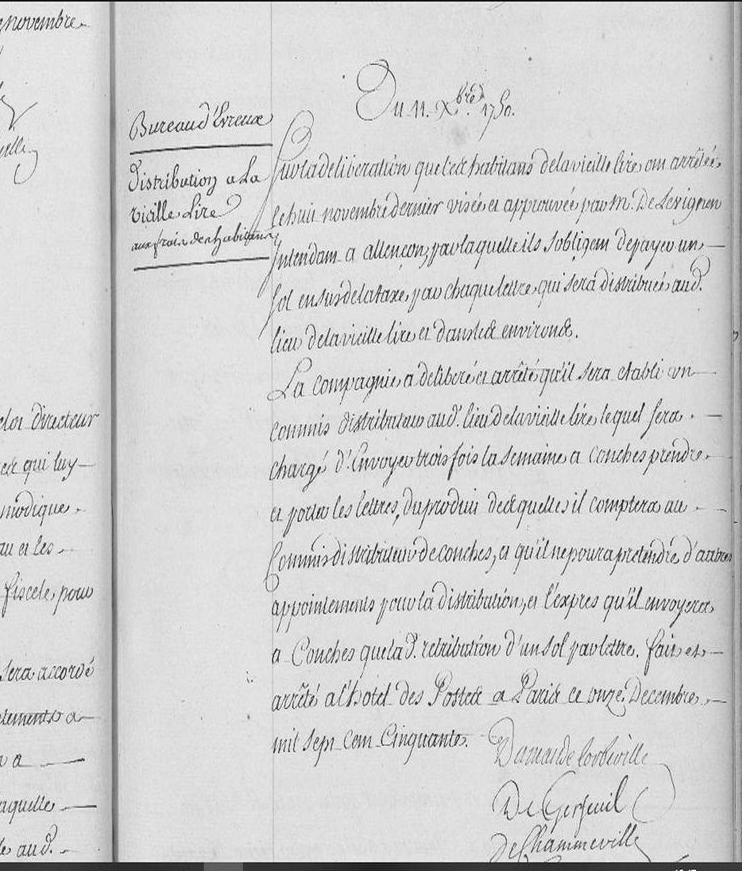 novembre
Du 11. Xbre 1750.
Bureau d'Evreux
Distribution a La
vieille Lire
aux frais des habitans
Sur la deliberation que les habitans de la vieille lire ont arrêtée
le huit novembre dernier visée et approuvée par M. De Levignen
Intendant a allençon, par laquelle ils s'obligent de payer un
sol en sus de la taxe, par chaque lettre, qui sera distribuée aud.
lieu de la vieille lire et dans les environs.
La Compagnie a deliberé et arrêté qu'il sera etabli un
commis distributeur aud. lieu de la vieille lire lequel sera
chargé d'Envoyer trois fois la semaine a conches prendre
et porter les lettres, du produit desquelles il comptera au
Commis distributeur de conches, et qu'il ne poura pretendre d'autres
appointements pour la distribution, et l'expres qu'il envoyera
a Conches que lad. retribution d'un sol par lettre. fait et
arrêté a l'hotel des Postes a Paris ce onze Decembre
mil sept cent Cinquante.
De
directeur
qui luy
modique
et les
fiscele, pour
sera accordé
a
laquelle
aud.